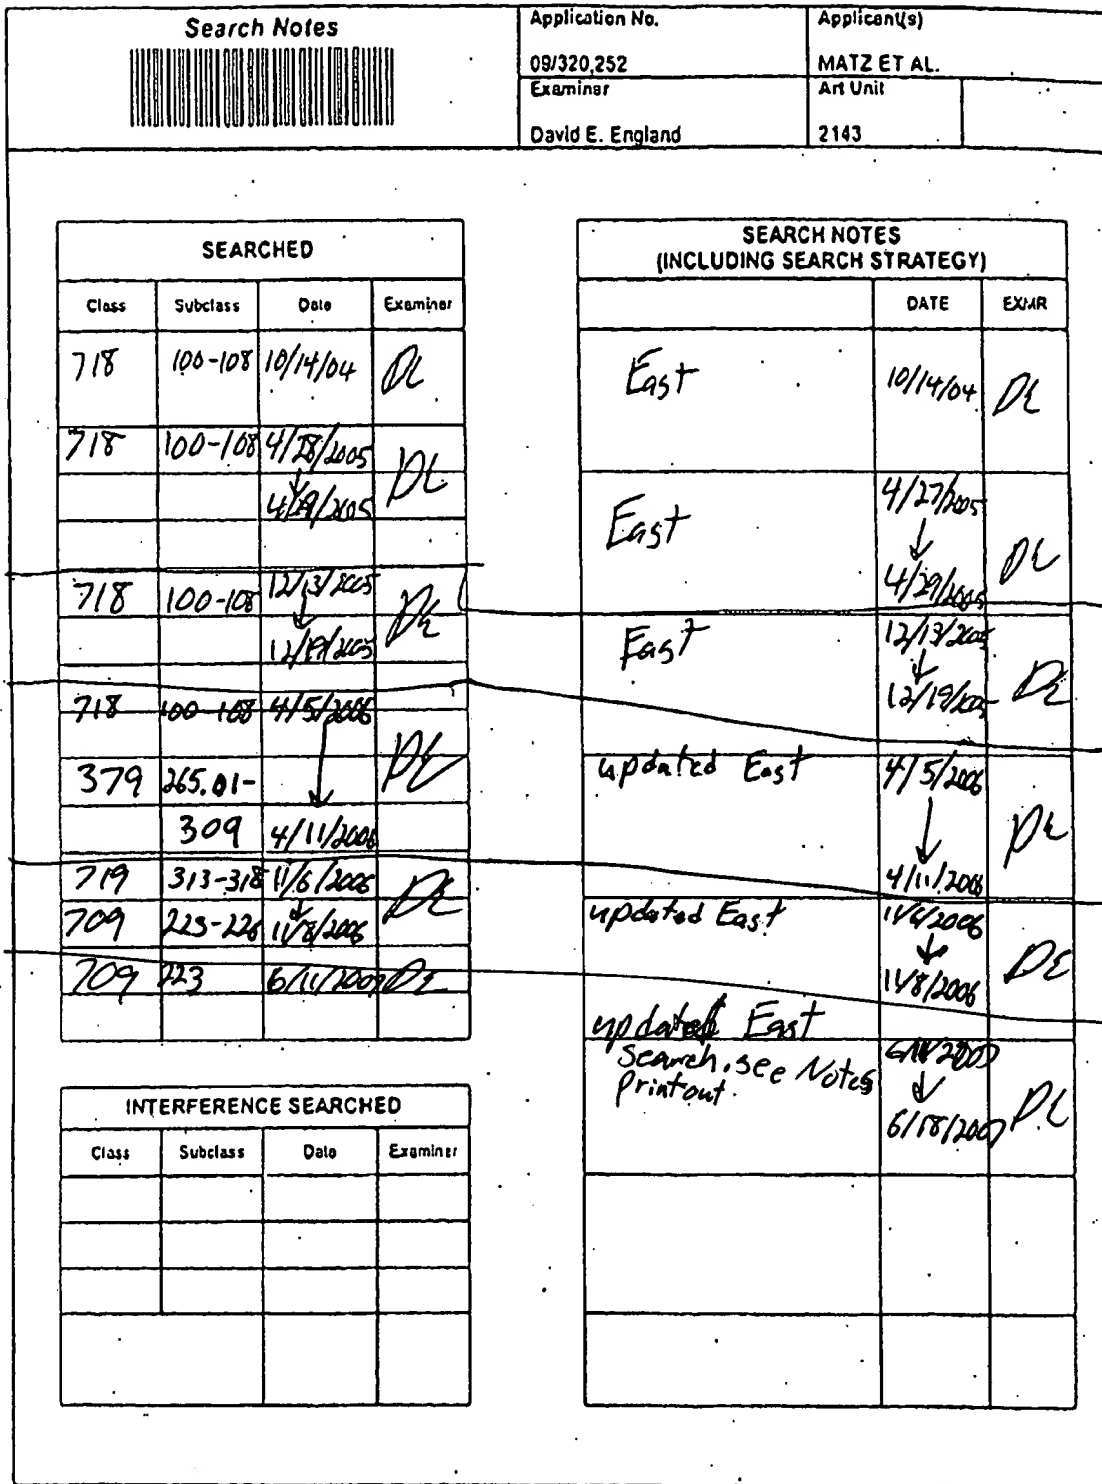 Search Notes
Application No.
Applicant(s)
09/320,252
MATZ ET AL.
Examiner
Art Unit
David E. England
2143
SEARCHED
Class Subclass Date Examiner
718 100-108 10/14/04 DE
718 100-108 4/28/2005 DE
4/29/2005
718 100-108 12/13/2005 DE
12/19/2005
718 100-108 4/5/2006 DE
379 265.01-
309 4/11/2006
719 313-318 11/6/2006 DE
709 223-226 11/8/2006
709 223 6/11/2007 DE
INTERFERENCE SEARCHED
Class Subclass Date Examiner
SEARCH NOTES
(INCLUDING SEARCH STRATEGY)
DATE EXMR
East 10/14/04 DE
4/27/2005
East DE
4/29/2005
East 12/13/2005
12/19/2005 DE
updated East 4/5/2006
DE
4/11/2006
updated East 11/6/2006
11/8/2006 DE
updated East
Search, see Notes 6/11/2007
Printout. DE
6/18/2007